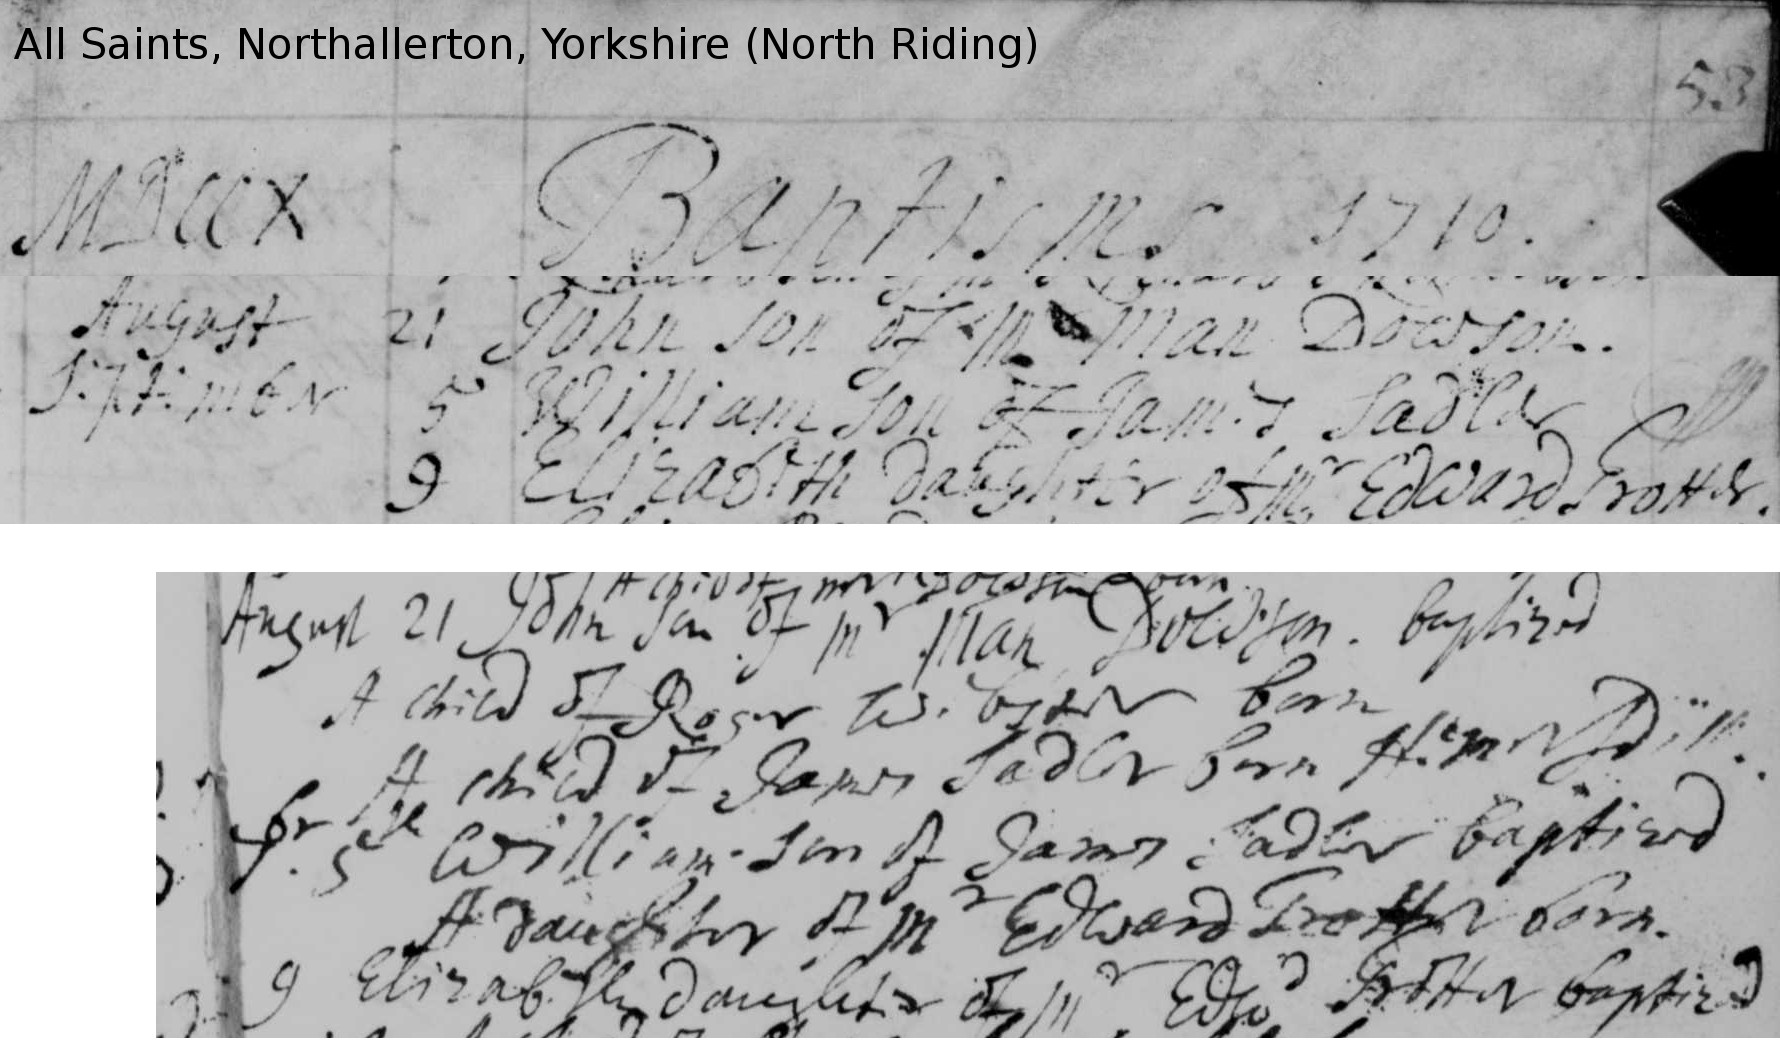 All Saints, Northallerton, Yorkshire (North Riding)
53
MDCCX Baptisms 1710.
August 21 John son of Mr Man Dowson.
September 5 William son of James Sadler
9 Elizabeth daughter of Mr Edward Trotter.
A child of mr Dowson born
August 21 John son of Mr Man Dowson. baptized
A child of Roger born
A child of James Sadler born
5 William son of James Sadler baptized
A daughter of Mr Edward Trotter born.
9 Elizabeth daughter of Mr Edwd Trotter baptized